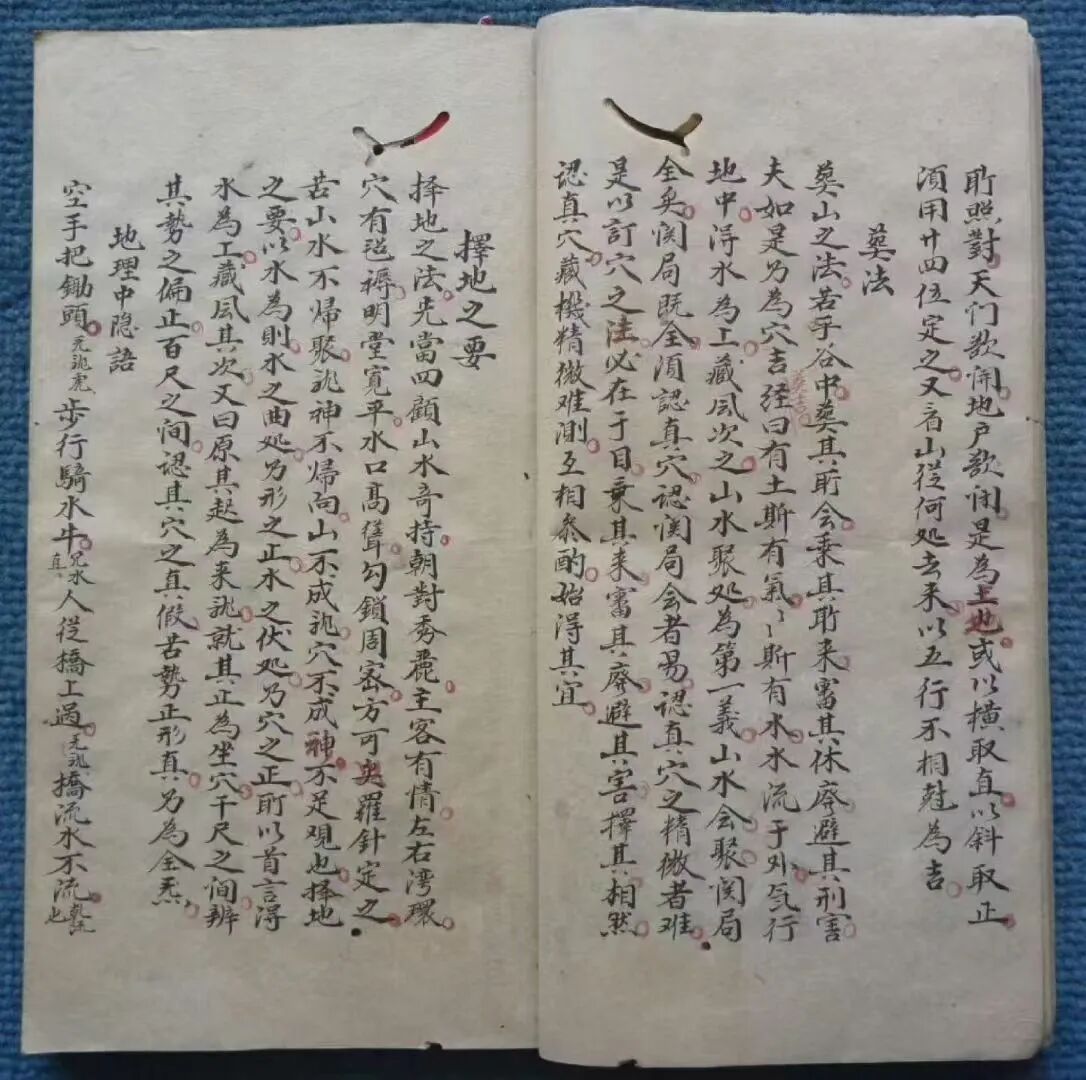 所照對天门欲開地户欲闭是為上也或以横取直以斜取正
須用廿四位定之又看山從何処去来以五行不相尅為吉
葬法
葬山之法若乎谷中葬其所会乘其所来審其休廢避其刑害
夫如是乃為穴吉经曰有土斯有氣〻斯有水水流于外気行
葬吉
地中得水為上藏风次之山水聚処為第一義山水会聚関局
全矣関局既全須認真穴認関局会者易認真穴之精微者难
是以訂穴之法必在于目乘其来審其廢避其害擇其相然
認真穴藏機精微难測互相叅酌始得其宜
擇地之要
择地之法先當四顧山水竒持朝對秀麗主客有情左右湾環
穴有毬褥明堂寬平水口髙聳勾鎖周密方可奂羅針定之
苦山水不歸聚龍神不歸向山不成龍穴不成神不足观也择地
之要以水為則水之曲処乃形之正水之伏処乃穴之正所以首言得
水為工藏风其次又曰原其起為来龍就其正為坐穴千尺之间辨
其勢之偏正百尺之间認其穴之真假苦勢正形真乃為全炁
地理中隐語
空手把鋤頭 无龍虎 步行騎水牛 兒水真 人從橋上過 无龍 橋流水不流 龍也